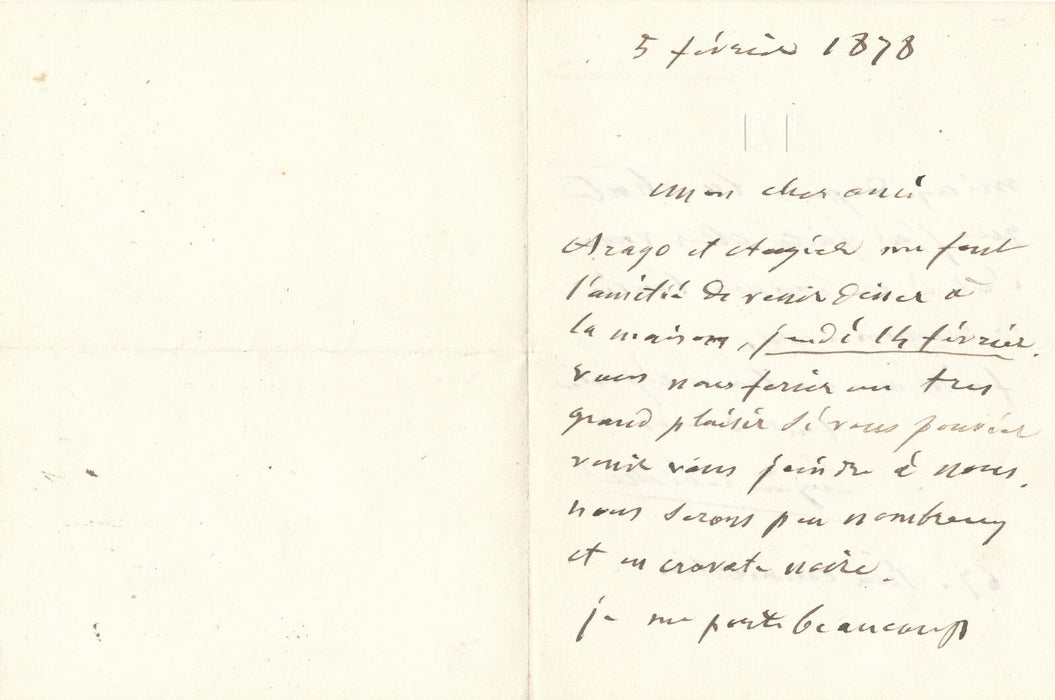 5 février 1878
Mon cher ami
Arago et Augier me font
l'amitié de venir diner à
la maison, jeudi 14 février.
vous nous feriez un tres
grand plaisir si vous pouviez
venir vous joindre à nous.
nous serons peu nombreux
et en cravate noire.
je me porte beaucoup